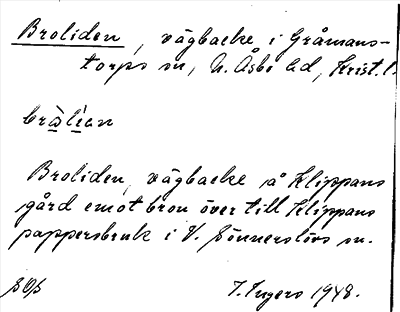 Broliden, vägbacke i Gråmans-
torps sn, N. Åsbo hd, Krist. l.
brò̲lì̲an
Broliden, vägbacke å Klippans
gård emot bron över till Klippans
pappersbruk i V. Sönnerslövs sn.
1948.